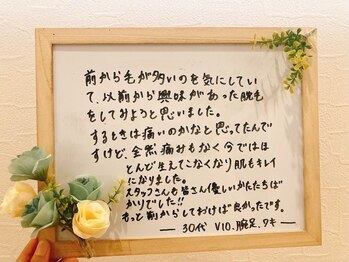 前から毛が多いのを気にしてい
て、以前から興味があった脱毛
をしてみようと思いました。
するときは痛いのかなと思ってたんで
すけど、全然痛みもなく今ではほ
とんど生えてこなくなり肌もキレイ
になりました。
スタッフさんも皆さん優しいかたたちば
かりでした!!
もっと前からしておけば良かったです。
— 30代 V10.腕足.ワキ —